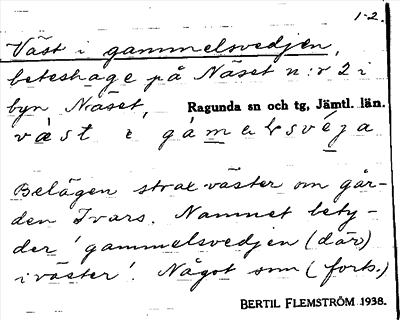 1-2.
Väst i gammelsvedjen,
beteshage på Näset n:r 2 i
byn Näset, Ragunda sn och tg, Jämtl. län.
väst i
Belägen strax väster om går-
den Ivars. Namnet bety-
der 'gammelsvedjen (där)
i väster'. Något som (forts.)
BERTIL FLEMSTRÖM 1938.